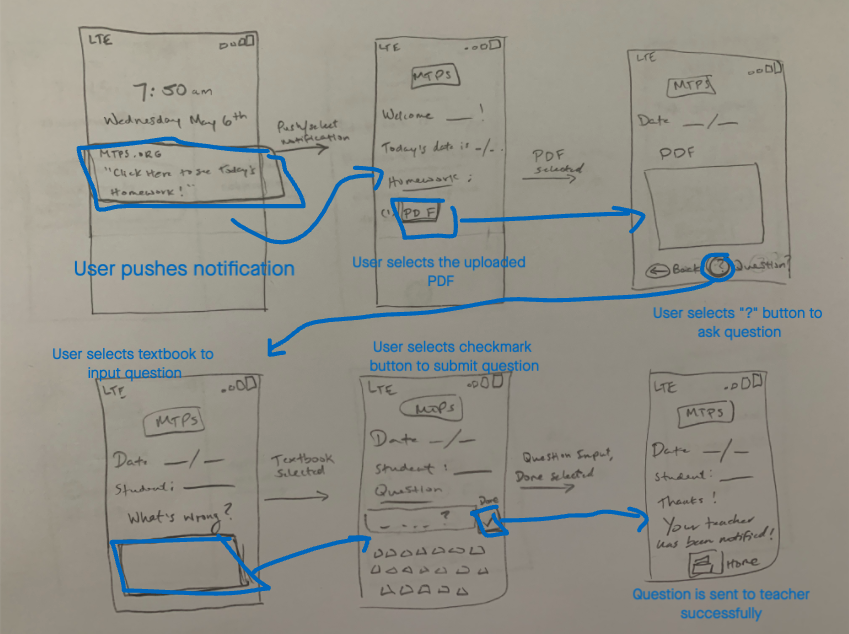 LTE
7:50 am
Wednesday May 6th
MTPS.ORG
"Click Here to see Today's
Homework!"
User pushes notification
Push/select
notification
LTE
MTPS
Welcome __ !
Today's date is -/-.
Homework:
PDF
User selects the uploaded
PDF
PDF
selected
LTE
MTPS
Date _/_
PDF
Back ? Question?
User selects "?" button to
ask question
User selects textbook to
input question
LTE
MTPS
Date _/_
Student: ___
What's wrong?
Textbook
Selected
User selects checkmark
button to submit question
LTE
MTPS
Date _/_
Student: ___
Question
Done
_ . _ . . ?
Question Input,
Done selected
LTE
MTPS
Date _/_
Student: __
Thanks!
Your teacher
has been notified!
Home
Question is sent to teacher
successfully